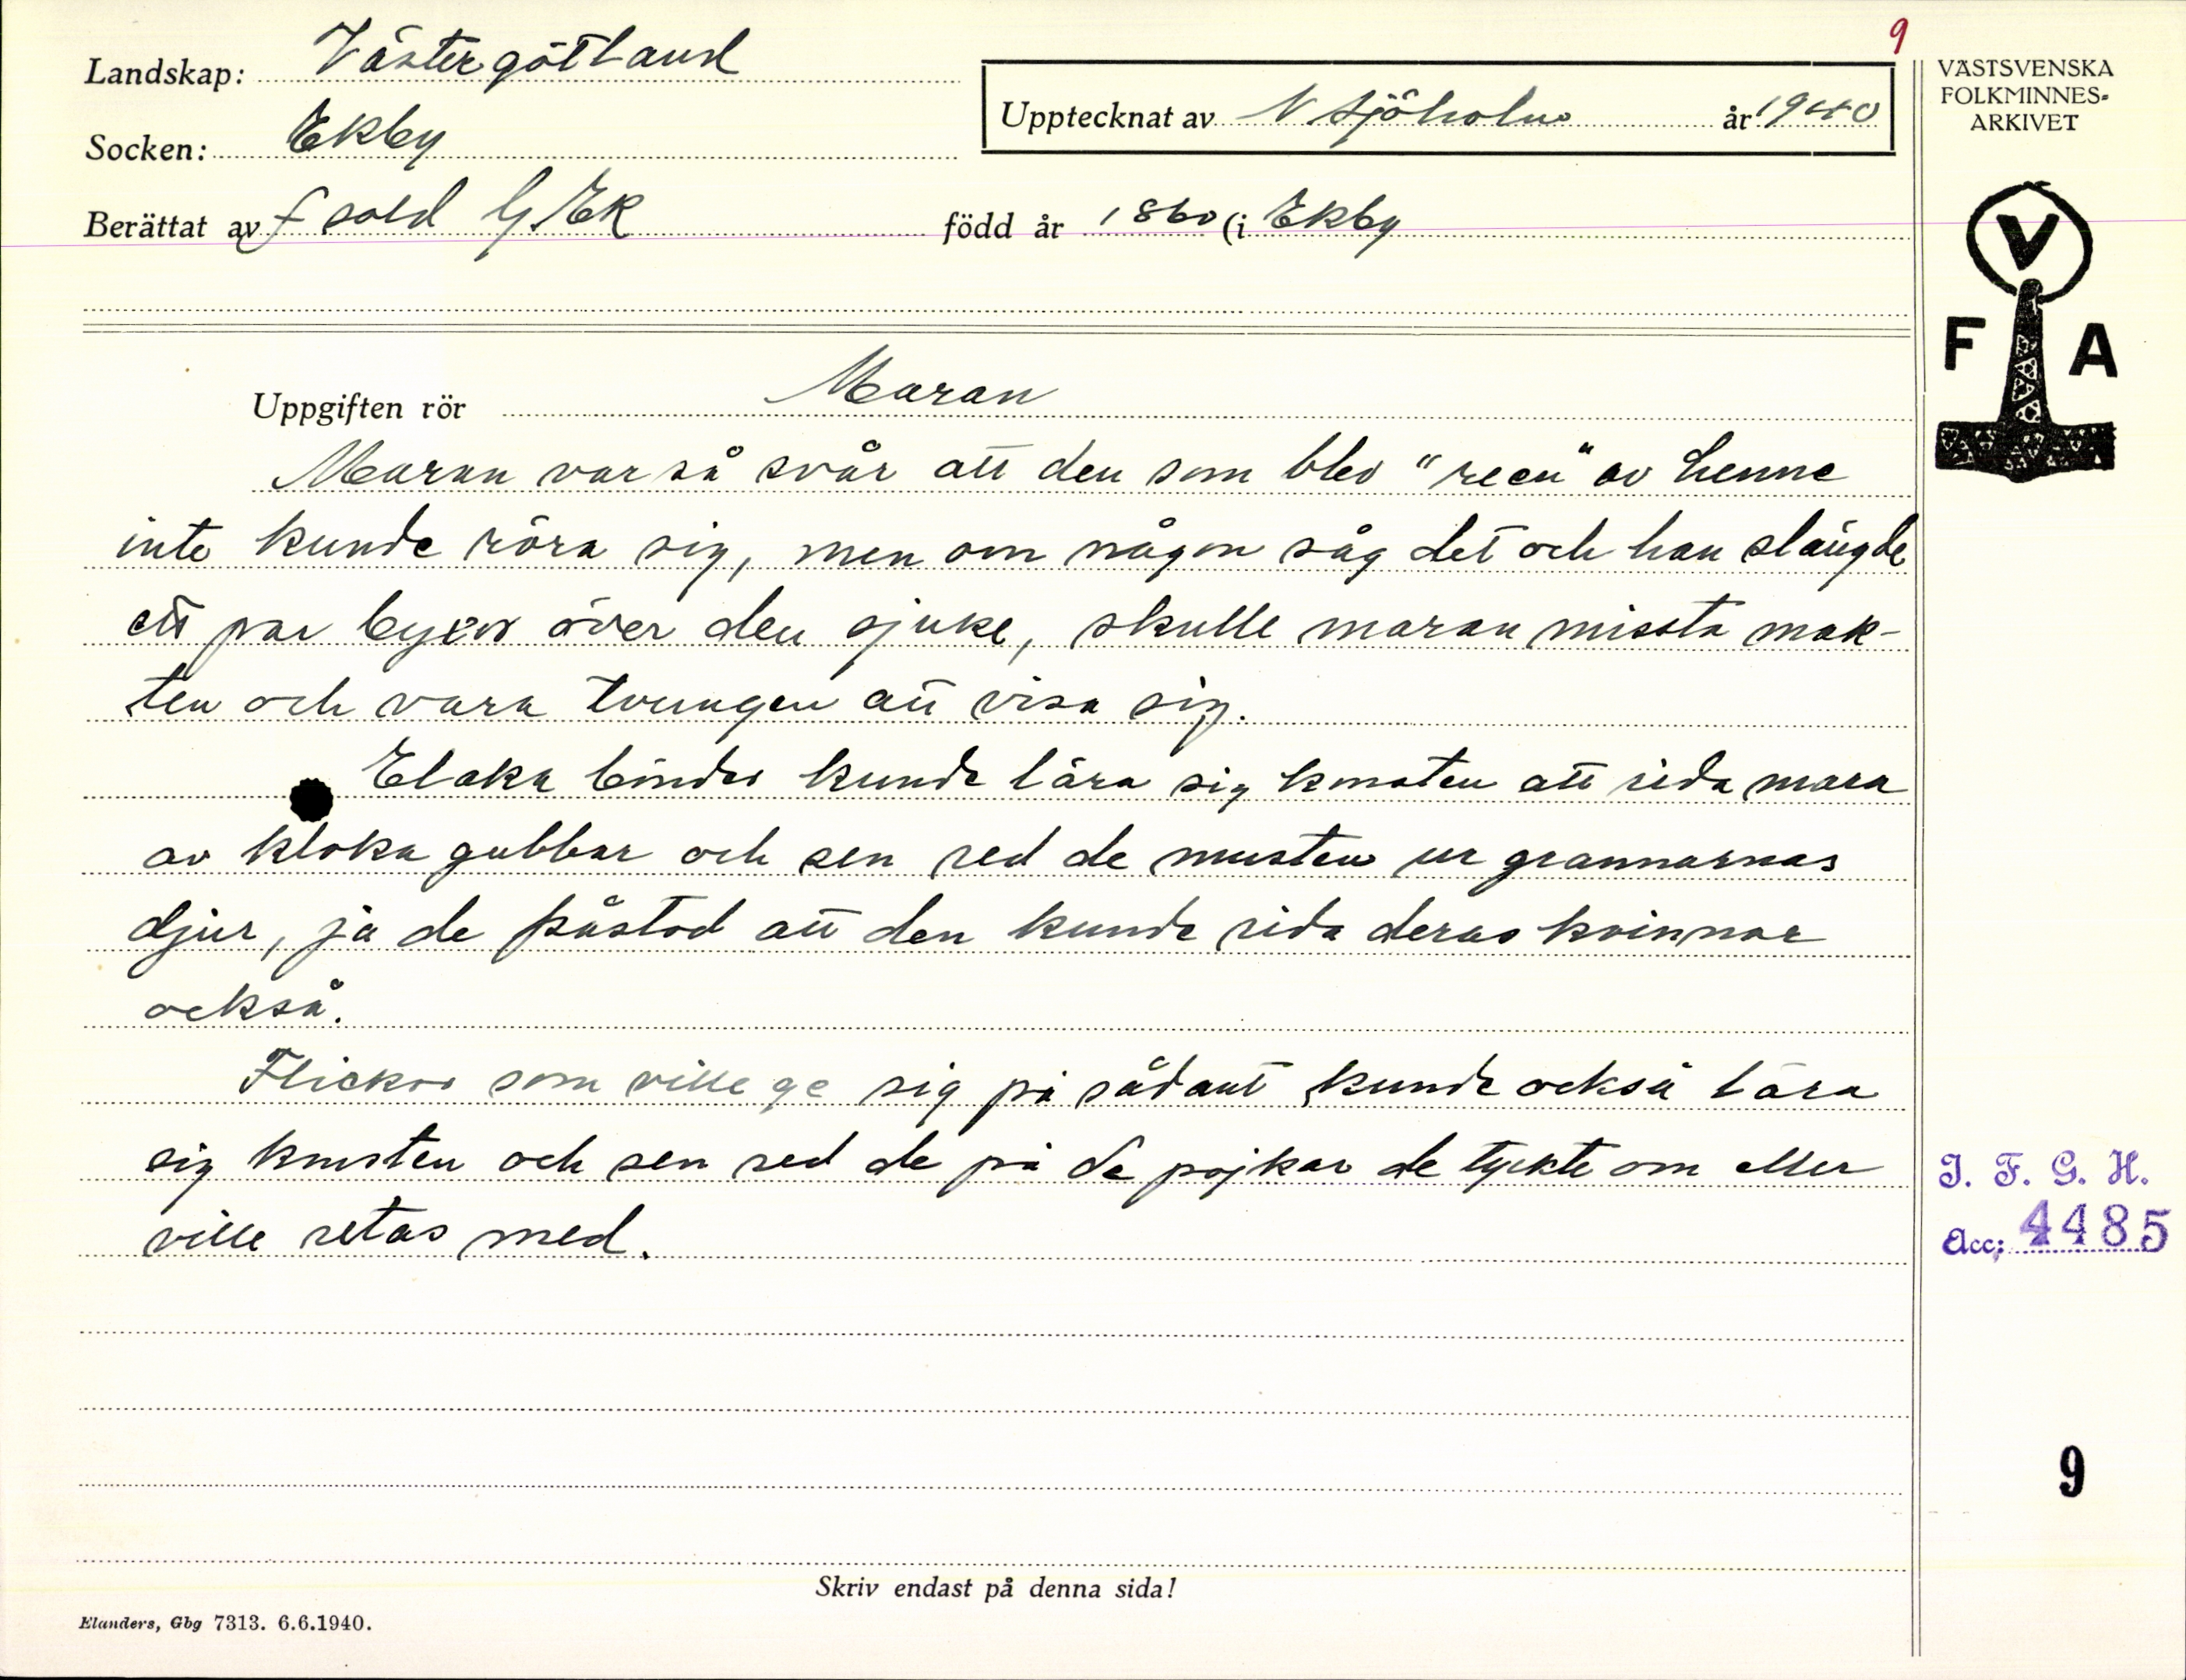 9
Landskap: Västergötland
Upptecknat av N Sjöholm år 1940
Socken: Ekby
Berättat av f sold G. Ek född år 1860 (i Ekby
VÄSTSVENSKA
FOLKMINNES-
ARKIVET
V
F A
Uppgiften rör Maran
Maran var så svår att den som blev "reen" av henne
inte kunde röra sig, men om någon såg det och han slängde
ett par byxor över den sjuke, skulle maran missta mak-
ten och vara tvungen att visa sig.
Elaka bönder kunde lära sig konsten att rida mara
av kloka gubbar och sen red de musten ur grannarnas
djur, ja de påstod att den kunde rida deras kvinnor
också.
Flickor som ville ge sig på sådant kunde också lära
sig konsten och sen red de på de pojkar de tyckte om eller
ville retas med.
I. F. G. H.
Acc: 4485
9
Skriv endast på denna sida!
Elanders, Gbg 7313. 6.6.1940.